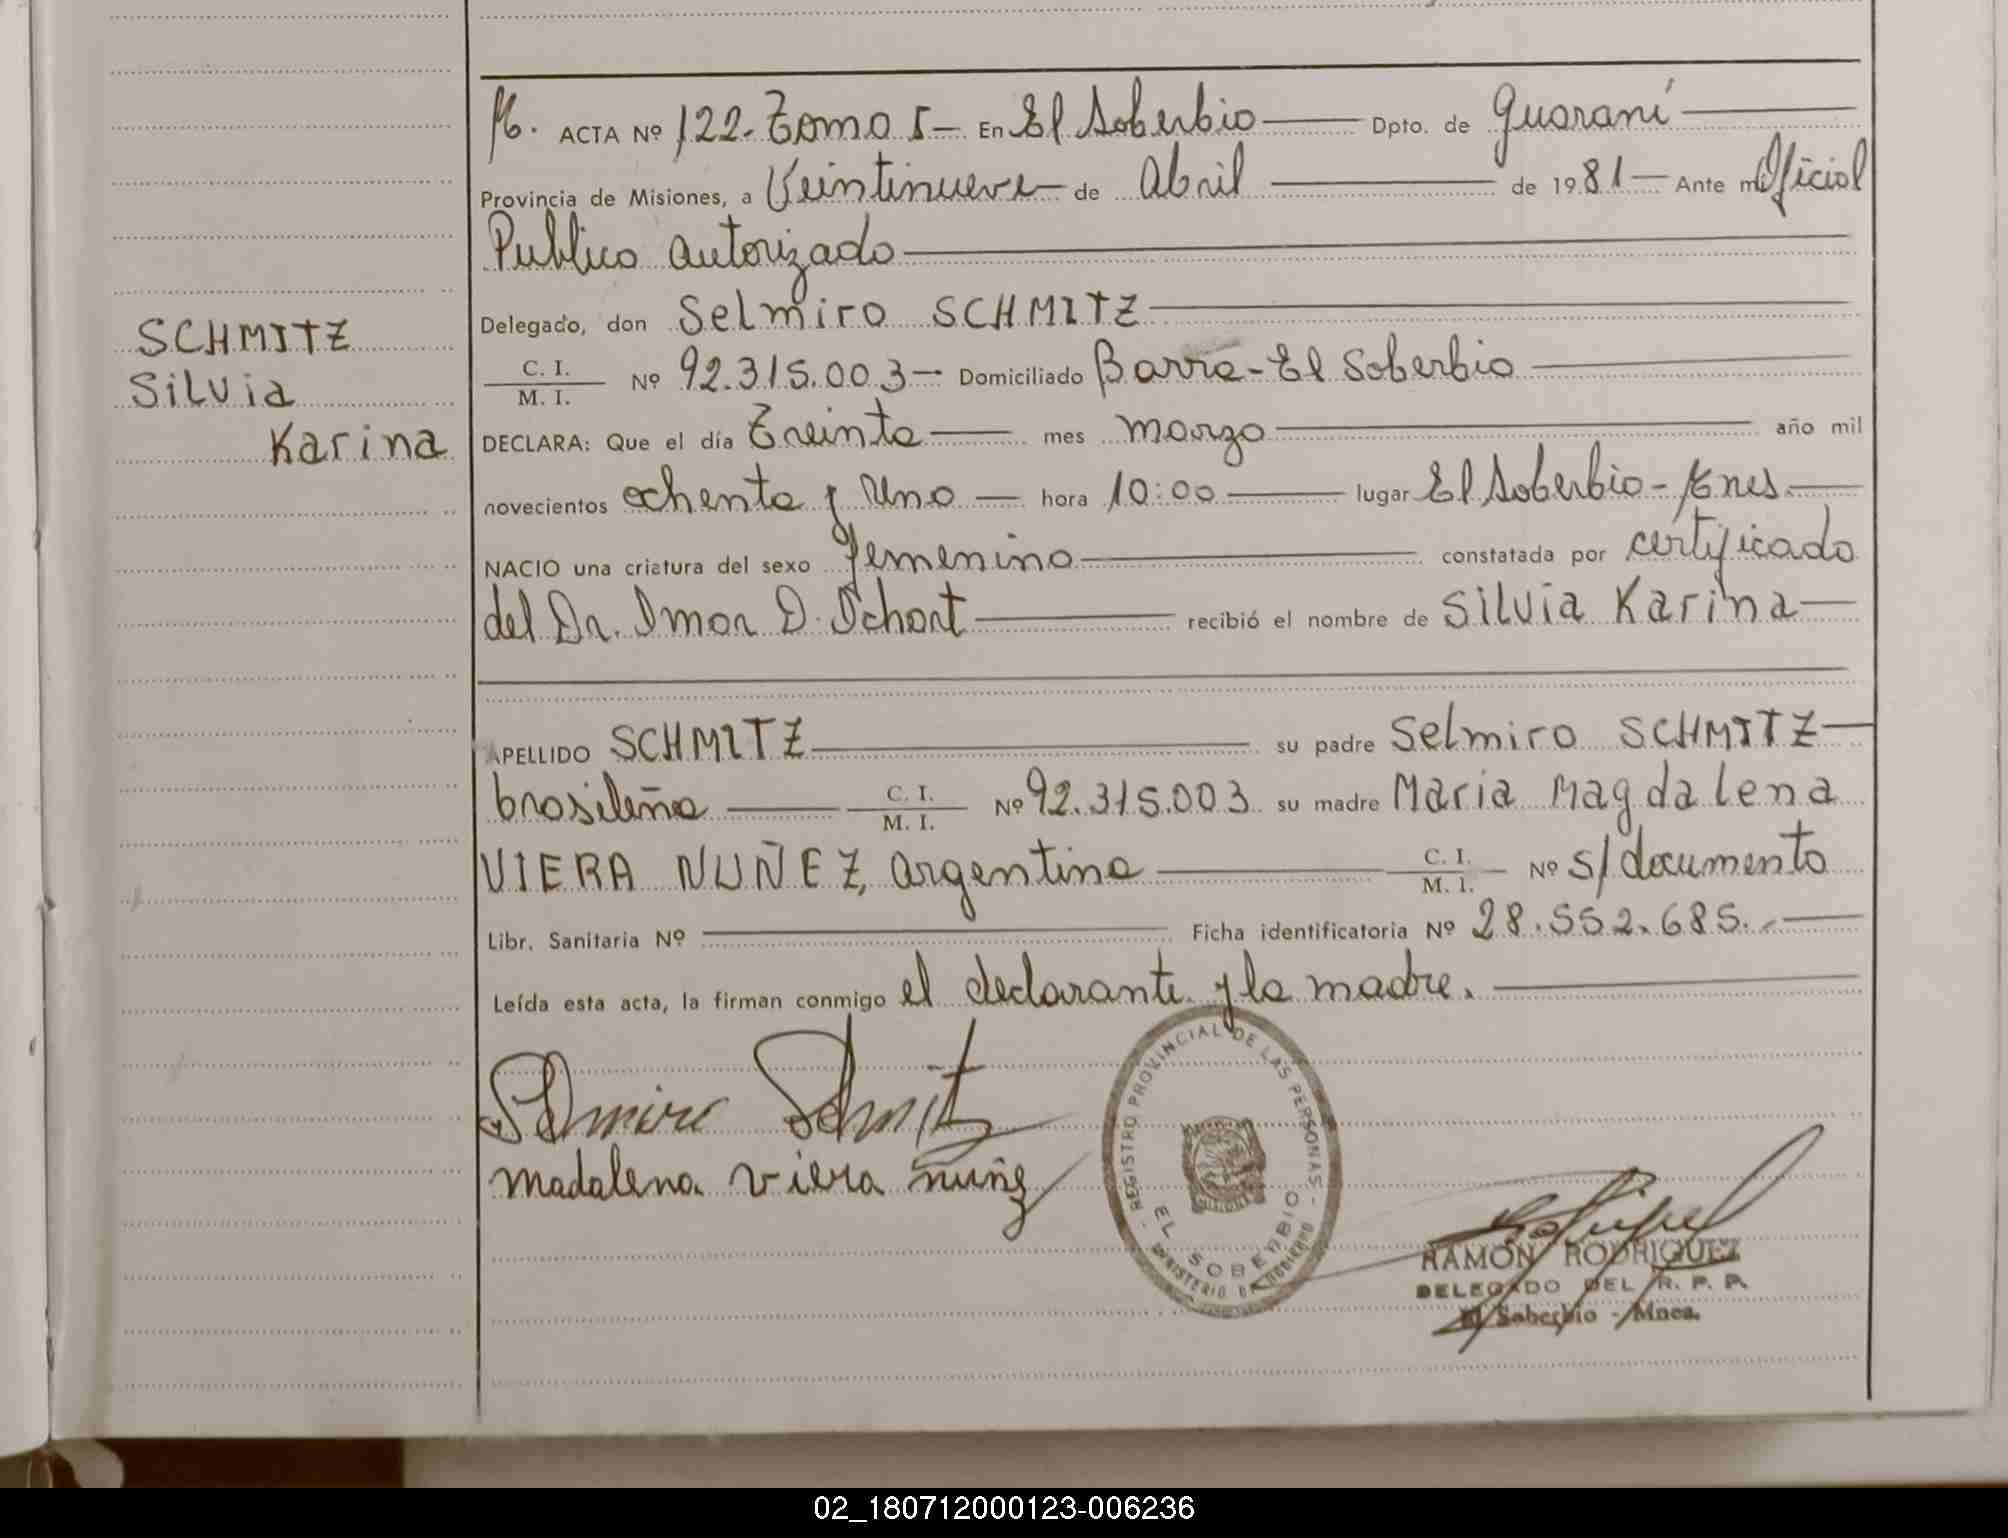 SCHMITZ
Silvia
Karina
ACTA Nº 122. Tomo I — En El Soberbio — Dpto. de Guaraní
Provincia de Misiones, a Veintinueve de Abril — de 1981 — Ante mi Oficial
Publico autorizado
Delegado, don Selmiro SCHMITZ
C. I. / M. I. Nº 92.315.003 — Domiciliado Barra - El Soberbio
DECLARA: Que el día Treinta — mes marzo — año mil
novecientos ochenta y uno — hora 10:00 — lugar El Soberbio -
NACIO una criatura del sexo femenino — constatada por certificado
del Dr. D. — recibió el nombre de Silvia Karina
APELLIDO SCHMITZ — su padre Selmiro SCHMITZ
brasileño — C. I. / M. I. Nº 92.315.003 su madre Maria Magdalena
VIERA NUÑEZ, argentina — C. I. / M. I. Nº S/documento
Libr. Sanitaria Nº — Ficha identificatoria Nº 28.552.685.-
Leída esta acta, la firman conmigo el declarante y la madre.
Selmiro Schmitz
madalena viera nuñz
- REGISTRO PROVINCIAL DE LAS PERSONAS -
EL SOBERBIO
MINISTERIO DE GOBIERNO
RAMÓN RODRIGUEZ
DELEGADO DEL R. P. P.
El Soberbio - Mnes.
02_180712000123-006236